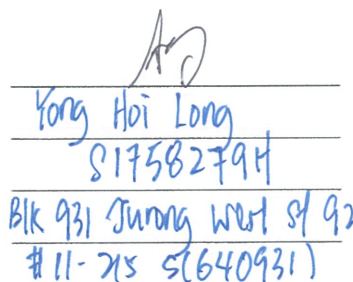 Yong Hoi Long
S1758279H
Blk 931 Jurong West St 92
#11-215 S(640931)